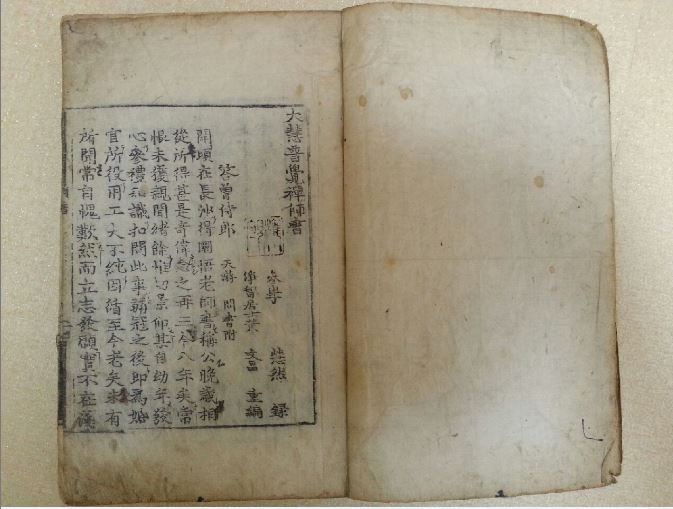 大慧普覺禪師書
參學 慧然 錄
淨智居士黃 文昌 重編
答曾侍郎 天游 問書附
開頃在長沙得圜悟老師書稱公晚歲相
從所得甚是奇偉念之再三今八年矣常
恨未獲親聞緖餘惟切景仰某自幼年發
心參禮知識扣問此事弱冠之後即爲婚
宦所役用工夫不純因循至今老矣未有
所聞常自愧歎然而立志發願實不在淺